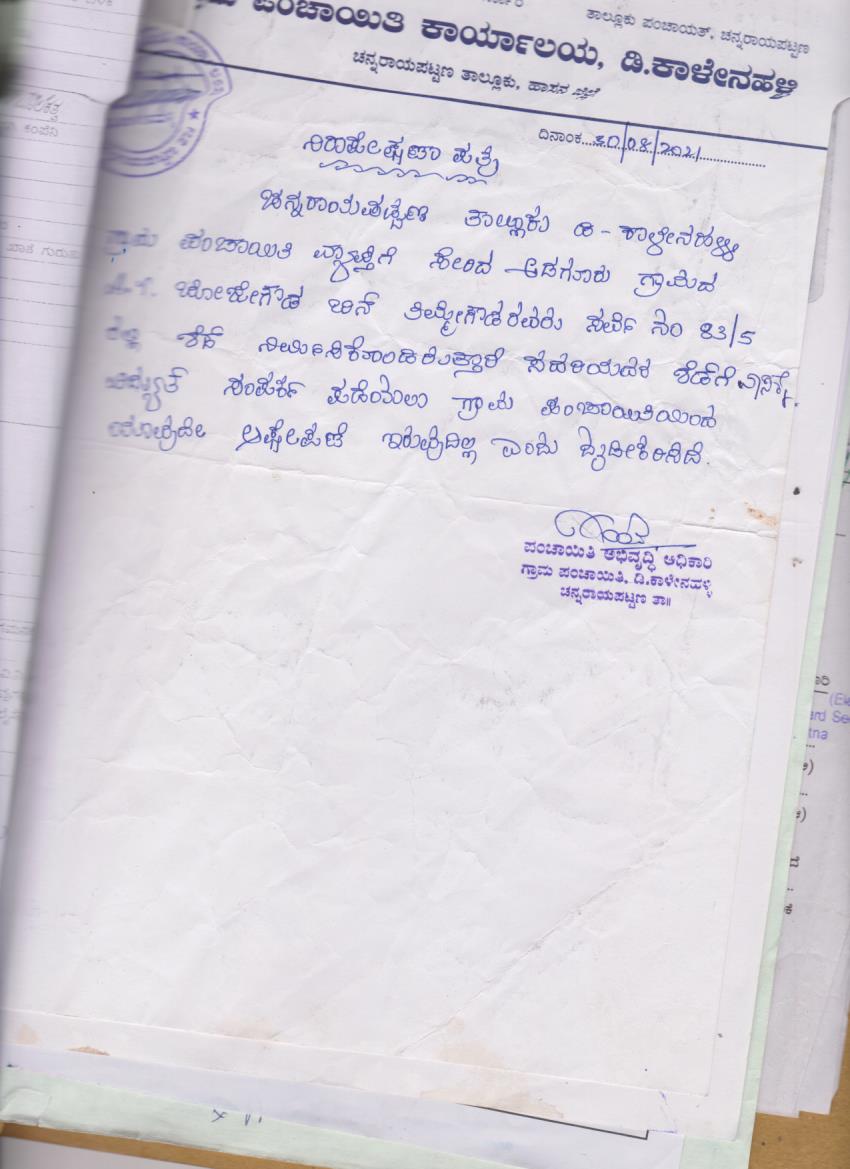 ತಾಲ್ಲೂಕು ಪಂಚಾಯತ್, ಚನ್ನರಾಯಪಟ್ಟಣ
ಪಂಚಾಯಿತಿ ಕಾರ್ಯಾಲಯ, ಡಿ.ಕಾಳೇನಹಳ್ಳಿ
ಚನ್ನರಾಯಪಟ್ಟಣ ತಾಲ್ಲೂಕು, ಹಾಸನ ಜಿಲ್ಲೆ
ದಿನಾಂಕ...30/08/2021
ನಿರಾಪೇಕ್ಷಣಾ ಪತ್ರ
ಚನ್ನರಾಯಪಟ್ಟಣ ತಾಲ್ಲೂಕು ಡಿ-ಕಾಳೇನಹಳ್ಳಿ
ಗ್ರಾಮ ಪಂಚಾಯಿತಿ ವ್ಯಾಪ್ತಿಗೆ ಸೇರಿದ ಆಡಗೂರು ಗ್ರಾಮದ
ಬೋಜೇಗೌಡ ಬಿನ್ ತಿಮ್ಮೇಗೌಡರವರು ಸರ್ವೆ ನಂ 83/5
ರಲ್ಲಿ ಶೆಡ್ ನಿರ್ಮಿಸಿಕೊಂಡಿರುತ್ತಾರೆ ಸದರಿಯವರ ಶೆಡ್‌ಗೆ
ವಿದ್ಯುತ್ ಸಂಪರ್ಕ ಪಡೆಯಲು ಗ್ರಾಮ ಪಂಚಾಯಿತಿಯಿಂದ
ಯಾವುದೇ ಆಕ್ಷೇಪಣೆ ಇರುವುದಿಲ್ಲ ಎಂದು ದೃಡೀಕರಿಸಿದೆ.
ಪಂಚಾಯಿತಿ ಅಭಿವೃದ್ಧಿ ಅಧಿಕಾರಿ
ಗ್ರಾಮ ಪಂಚಾಯಿತಿ, ಡಿ.ಕಾಳೇನಹಳ್ಳಿ
ಚನ್ನರಾಯಪಟ್ಟಣ ತಾ॥